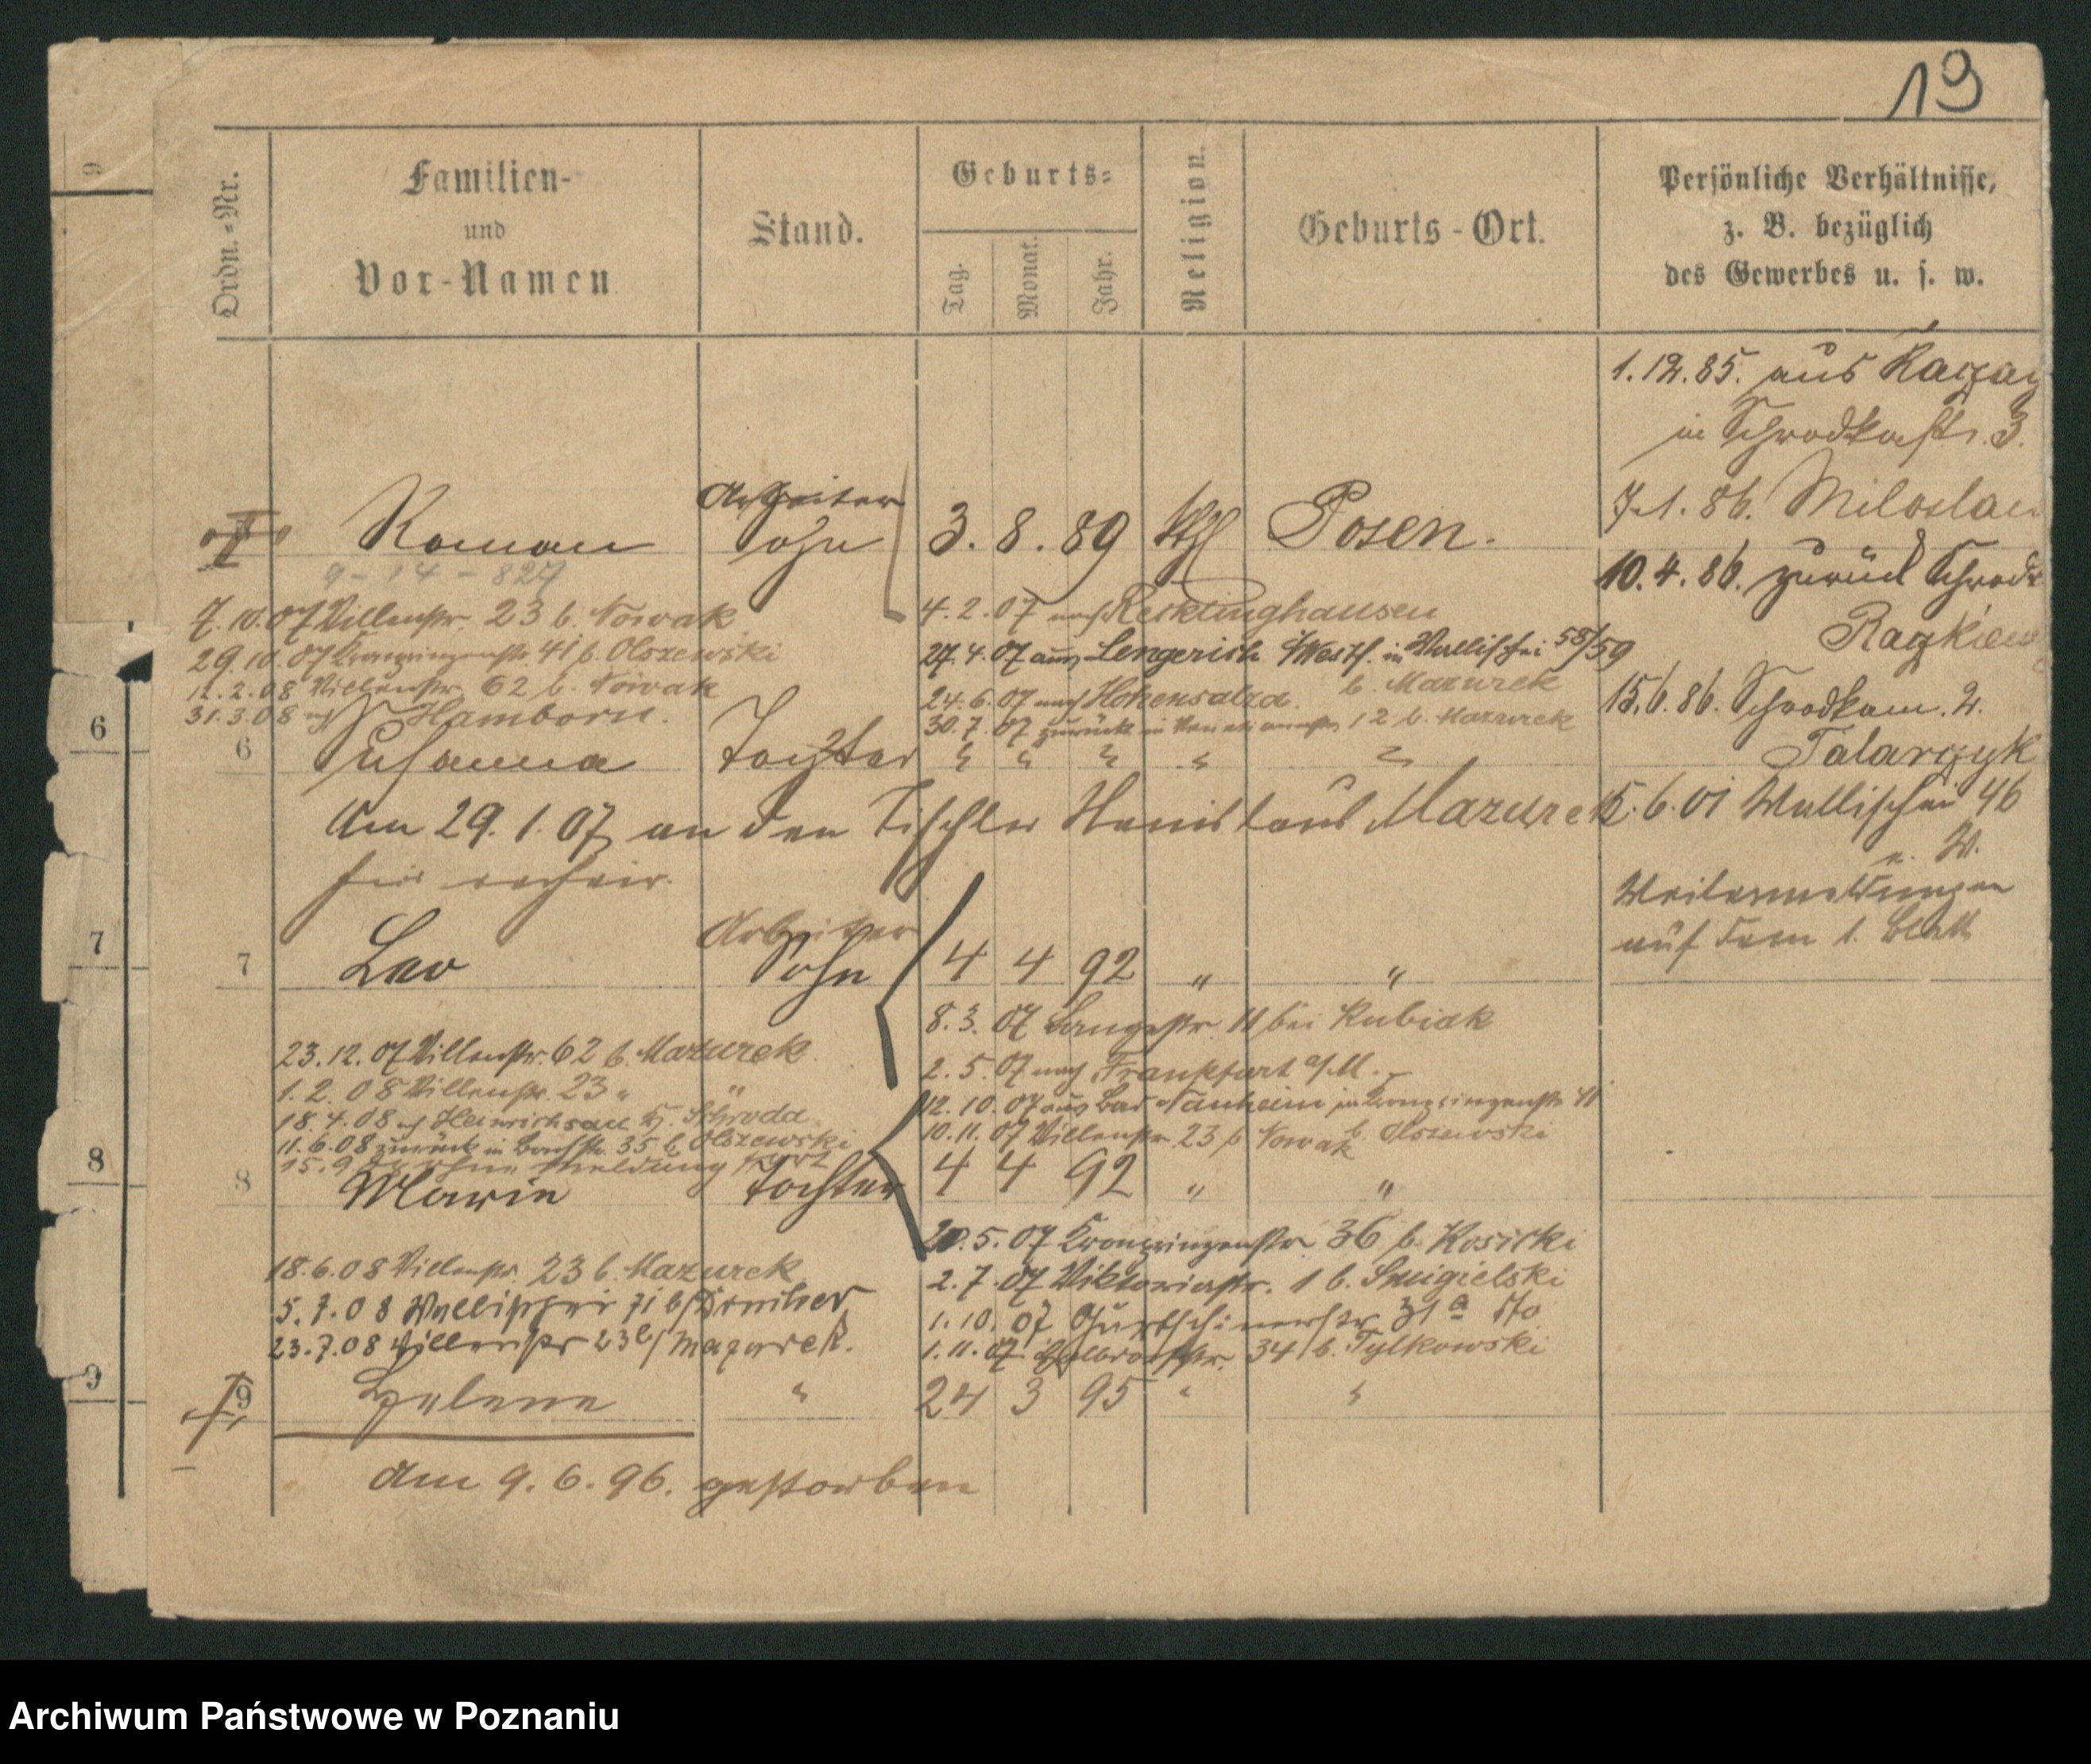 19
Ordn.-Nr.
Familien-
und
Vor-Namen
Stand.
Geburts-
Tag.
Monat.
Jahr.
Religion.
Geburts-Ort.
Persönliche Verhältnisse,
z. B. bezüglich
des Gewerbes u. s. w.
1.12.85. aus
in Schrodkastr. 3.
7.1.86. Miloslaw
10.4.86. zurück Schrodk
15.6.86. Schrodkam. 2.
Talarczyk
15.6.01 Wallischei 46
Weitermeldungen
auf dem 1. Blatt
Arbeiter
Roman Sohn 3. 8. 89 kthl Posen.
9-14-827
7.10.07 Villenstr. 23 b. Nowak
29.10.07 Kronprinzenstr. 41 b. Olszewski
12.2.08 Villenstr. 62 b. Nowak
31.3.08 n/ Hamborn.
4.2.07 nach Recklinghausen
27.4.07 aus Lengerich i/Westf. in Wallischei 58/59
b. Mazurek
24.6.07 nach Hohensalza.
30.7.07 zurück in 12 b. Mazurek
6 Susanna Tochter " " " " "
Am 29.1.07 an den Tischler Stanislaus Mazurek
hier verheir.
Arbeiter
7 Leo Sohn 4 4 92 " "
8.3.07 Langestr. 11 bei Kubiak
2.5.07 nach Frankfurt a/M.
12.10.07 aus Bad Nauheim in Kronprinzenstr. 41
b. Olszewski
10.11.07 Villenstr. 23 b. Nowak
23.12.07 Villenstr. 62 b. Mazurek.
1.2.08 Villenstr. 23 " "
18.4.08 n/ Heinrichsau Kr. Schroda
11.6.08 zurück in Bachstr. 35 b. Olszewski
8 Marie Tochter 4 4 92 " "
20.5.07 Kronprinzenstr. 36 b. Kosicki
2.7.07 Viktoriastr. 1 b. Smigielski
1.10.07 31a
1.11.07 34 b. Tylkowski
18.6.08 Villenstr. 23 b. Mazurek
5.7.08 Wallischei 71 b/
23.7.08 Villenstr 23 b/ Mazurek.
9 Helene " 24 3 95 " "
Am 9.6.96. gestorben
9
6
7
8
9
Archiwum Państwowe w Poznaniu